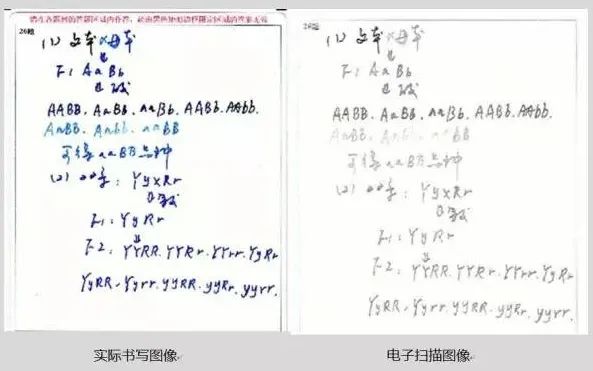 请在各题目的答题区域内作答，超出黑色矩形边框限定区域的答案无效
26题
(1) 父本×母本
F1 AaBb
AABB. AaBB. aaBb. AABb. AAbb.
AaBB. Aabb. aaBB
可得aaBB品种
(2) 父本: YyxRr
F1: YyRr
F2: YYRR. YYRr. YYrr. YyRr
YyRR. Yyrr. yyRR. yyRr. yyrr.
26题
(1) 父本×母本
F1 AaBb
AABB. AaBB. aaBb. AABb. AAbb.
AaBB. Aabb. aaBB
可得aaBB品种
(2) YyxRr
F1: YyRr
F2: YYRR. YYRr. YYrr. YyRr
YyRR. Yyrr. yyRR. yyRr. yyrr.
实际书写图像
电子扫描图像